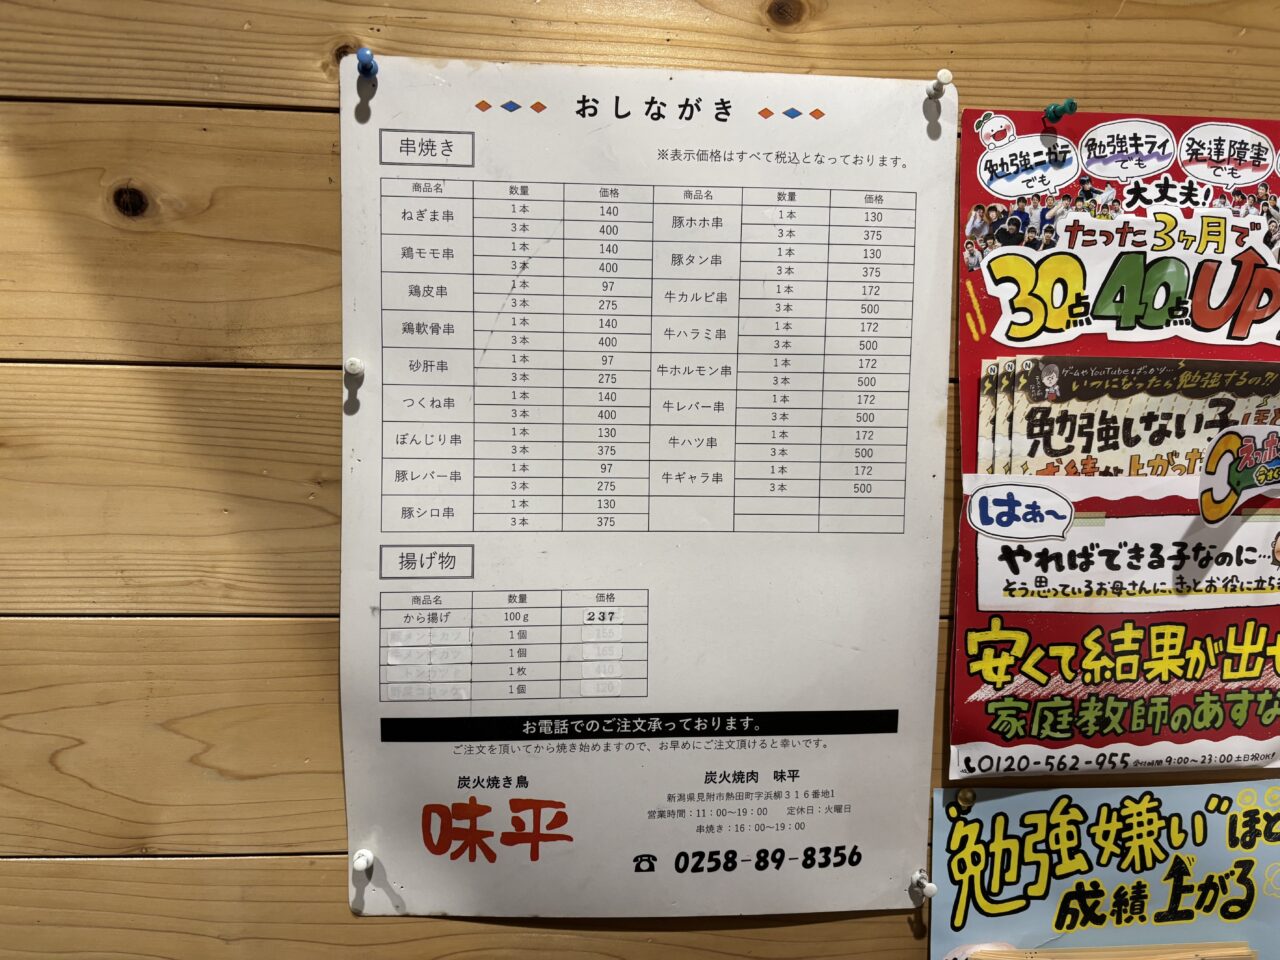 おしながき
串焼き
※表示価格はすべて税込となっております。
商品名 数量 価格 商品名 数量 価格
ねぎま串 1本 140 豚ホホ串 1本 130
3本 400 3本 375
鶏モモ串 1本 140 豚タン串 1本 130
3本 400 3本 375
鶏皮串 1本 97 牛カルビ串 1本 172
3本 275 3本 500
鶏軟骨串 1本 140 牛ハラミ串 1本 172
3本 400 3本 500
砂肝串 1本 97 牛ホルモン串 1本 172
3本 275 3本 500
つくね串 1本 140 牛レバー串 1本 172
3本 400 3本 500
ぼんじり串 1本 130 牛ハツ串 1本 172
3本 375 3本 500
豚レバー串 1本 97 牛ギャラ串 1本 172
3本 275 3本 500
豚シロ串 1本 130
3本 375
揚げ物
商品名 数量 価格
から揚げ 100g 237
メンチカツ 1個
メンチカツ 1個 165
トンカツ 1枚 410
1個 120
お電話でのご注文承っております。
ご注文を頂いてから焼き始めますので、お早めにご注文頂けると幸いです。
炭火焼き鳥
味平
炭火焼肉 味平
新潟県見附市熱田町字浜柳316番地1
営業時間:11:00～19:00 定休日:火曜日
串焼き:16:00～19:00
☎ 0258-89-8356
勉強ニガテでも
勉強キライでも
発達障害でも
大丈夫!
たった3ヶ月で
30点40点UP
ゲームやYouTubeばっかり…
いつになったら勉強するの?!
勉強しない子ほど
成績が上がった
はぁ～
やればできる子なのに…
そう思っているお母さんに、きっとお役に立ちま
安くて結果が出せ
家庭教師のあすな
0120-562-955 受付時間 9:00～23:00 土日祝OK!
勉強嫌いほど
成績上がる